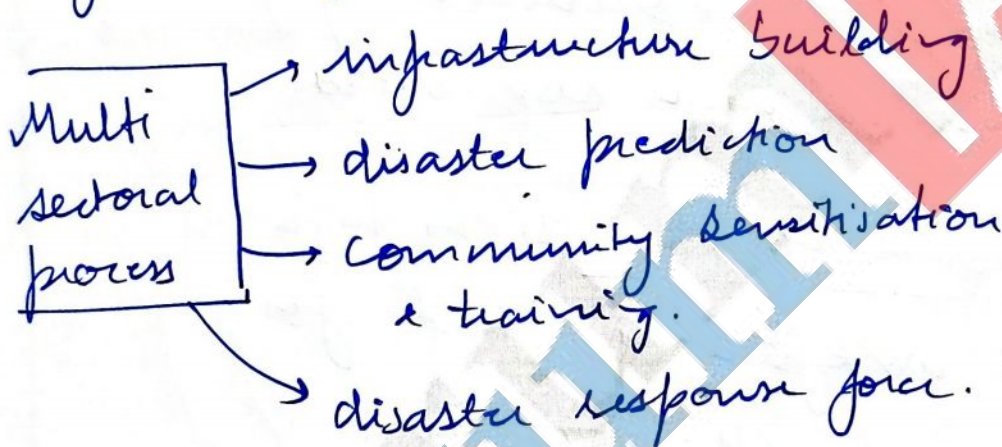 Multi
sectoral
process
infrastructure building
disaster prediction
community sensitisation
& training.
disaster response force.